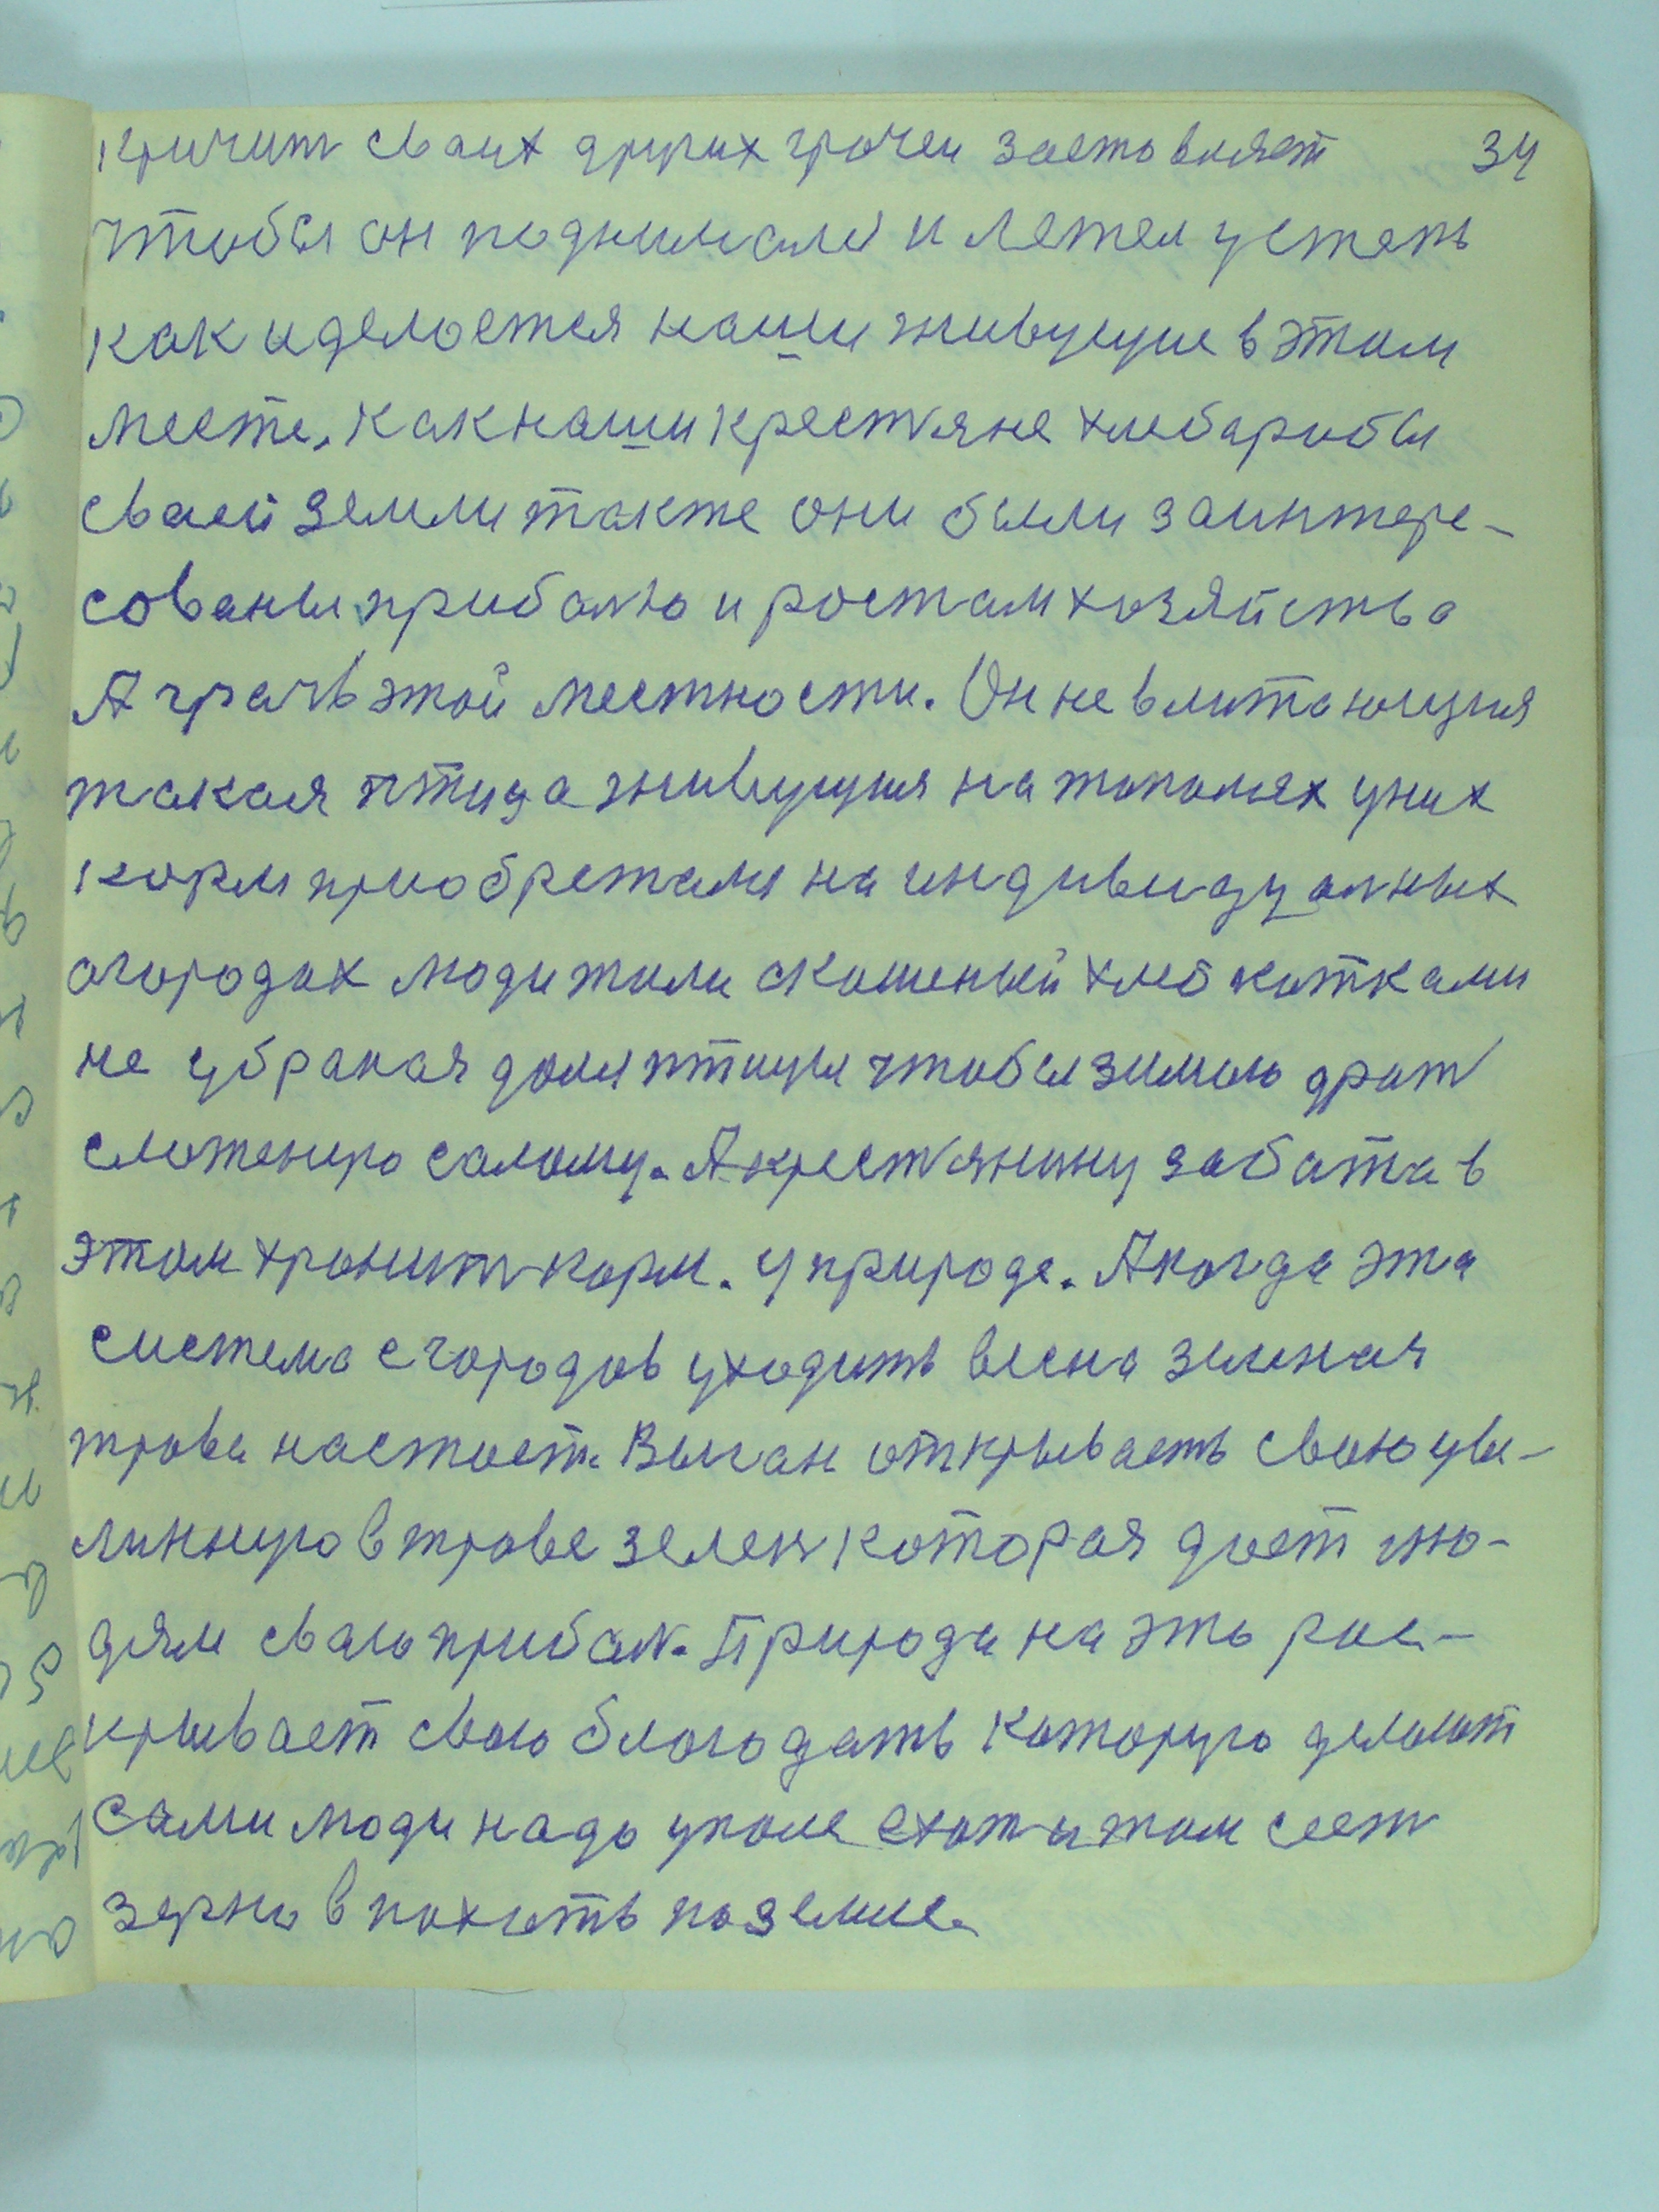 кричит сваих других грачей заставляет 34
чтобы он поднимался и летел у степь
как и делоется наши живущие в этом
месте, как наши крестяне хлебаробы
сваей земли также они были заинтере-
сованы прибалю и ростам хозяйства
А грач в этой местности. Он не влитающия
такая птица живущия на тополях у них
корм приобретали на индивидуалных
огородах люди жили скошеный хлеб катками
не убраная доля птицы чтобы зимою
сложеную салому. А крестянину забата в
этом хранит корм. у природе. А когда эта
система с городов уходить весна зеленая
трава настает. Выган открываеть сваю
в траве зелен которая дает лю-
дям сваю прибал. Природа на это рас-
крывает сваю благодать каторую делают
сами люди надо у поле ехат и там сеет
зерно в пахать по земле.